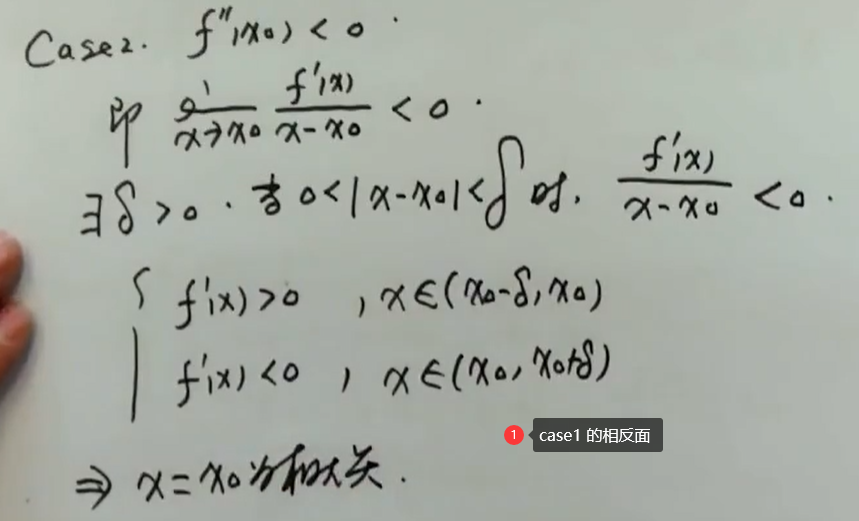 Case2. f''(x0) < 0.
即 lim x→x0 f'(x)/(x-x0) < 0.
∃δ>0. 当 0<|x-x0|<δ 时, f'(x)/(x-x0) < 0.
{ f'(x)>0 , x∈(x0-δ, x0)
f'(x)<0 , x∈(x0, x0+δ)
1 case1 的相反面
⇒ x=x0为极大点.